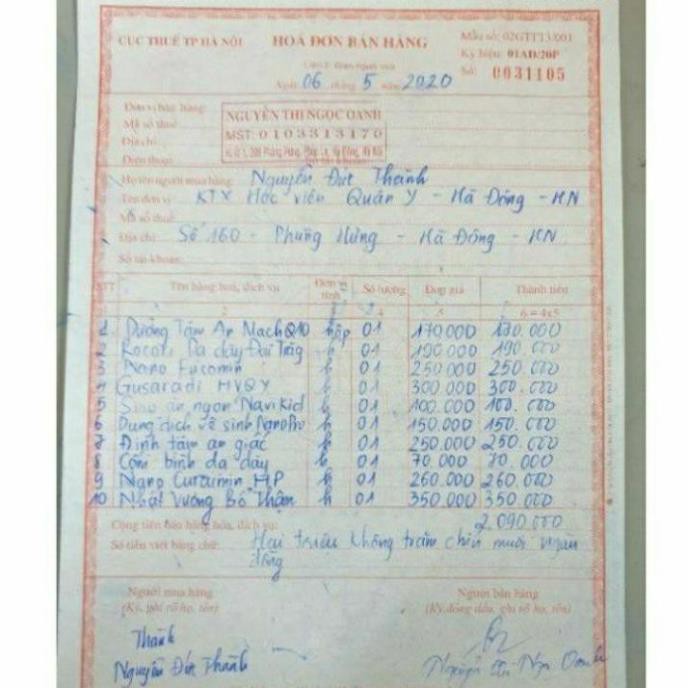 CỤC THUẾ TP HÀ NỘI
HOÁ ĐƠN BÁN HÀNG
Mẫu số: 02GTTT3/001
Ký hiệu: 01AD/20P
Liên 2: Giao người mua
Số: 0031105
Ngày 06 tháng 5 năm 2020
Đơn vị bán hàng:
NGUYỄN THỊ NGỌC OANH
Mã số thuế
MST: 0103313170
Địa chỉ:
Điện thoại:
Họ tên người mua hàng: Nguyễn Đức Thành
Tên đơn vị: KTX Học viện Quân Y - Hà Đông - HN
Mã số thuế
Địa chỉ: Số 160 - Phùng Hưng - Hà Đông - HN
Số tài khoản:
STT Tên hàng hoá, dịch vụ Đơn vị tính Số lượng Đơn giá Thành tiền
2 4 5 6 = 4x5
1 Dưỡng Tâm An Mạch Q10 hộp 01 170.000 170.000
2 Dạ dày Đại Tràng h 01 190.000 190.000
3 Nano Fucomin h 01 250.000 250.000
4 Gusaradi HVQY h 01 300.000 300.000
5 Siro ăn ngon Navikid h 01 100.000 100.000
6 Dung dịch vệ sinh NanoPro h 01 150.000 150.000
7 Định tâm an giấc h 01 250.000 250.000
8 Cốm bình dạ dày h 01 70.000 70.000
9 Nano Curcumin HP h 01 260.000 260.000
10 Nhất Vương Bổ Thận h 01 350.000 350.000
Cộng tiền bán hàng hóa, dịch vụ: 2.090.000
Số tiền viết bằng chữ: Hai triệu không trăm chín mươi ngàn
đồng
Người mua hàng
Người bán hàng
(Ký, ghi rõ họ, tên)
(Ký, đóng dấu, ghi rõ họ, tên)
Thành
Nguyễn Đức Thành
Nguyễn Thị Ngọc Oanh